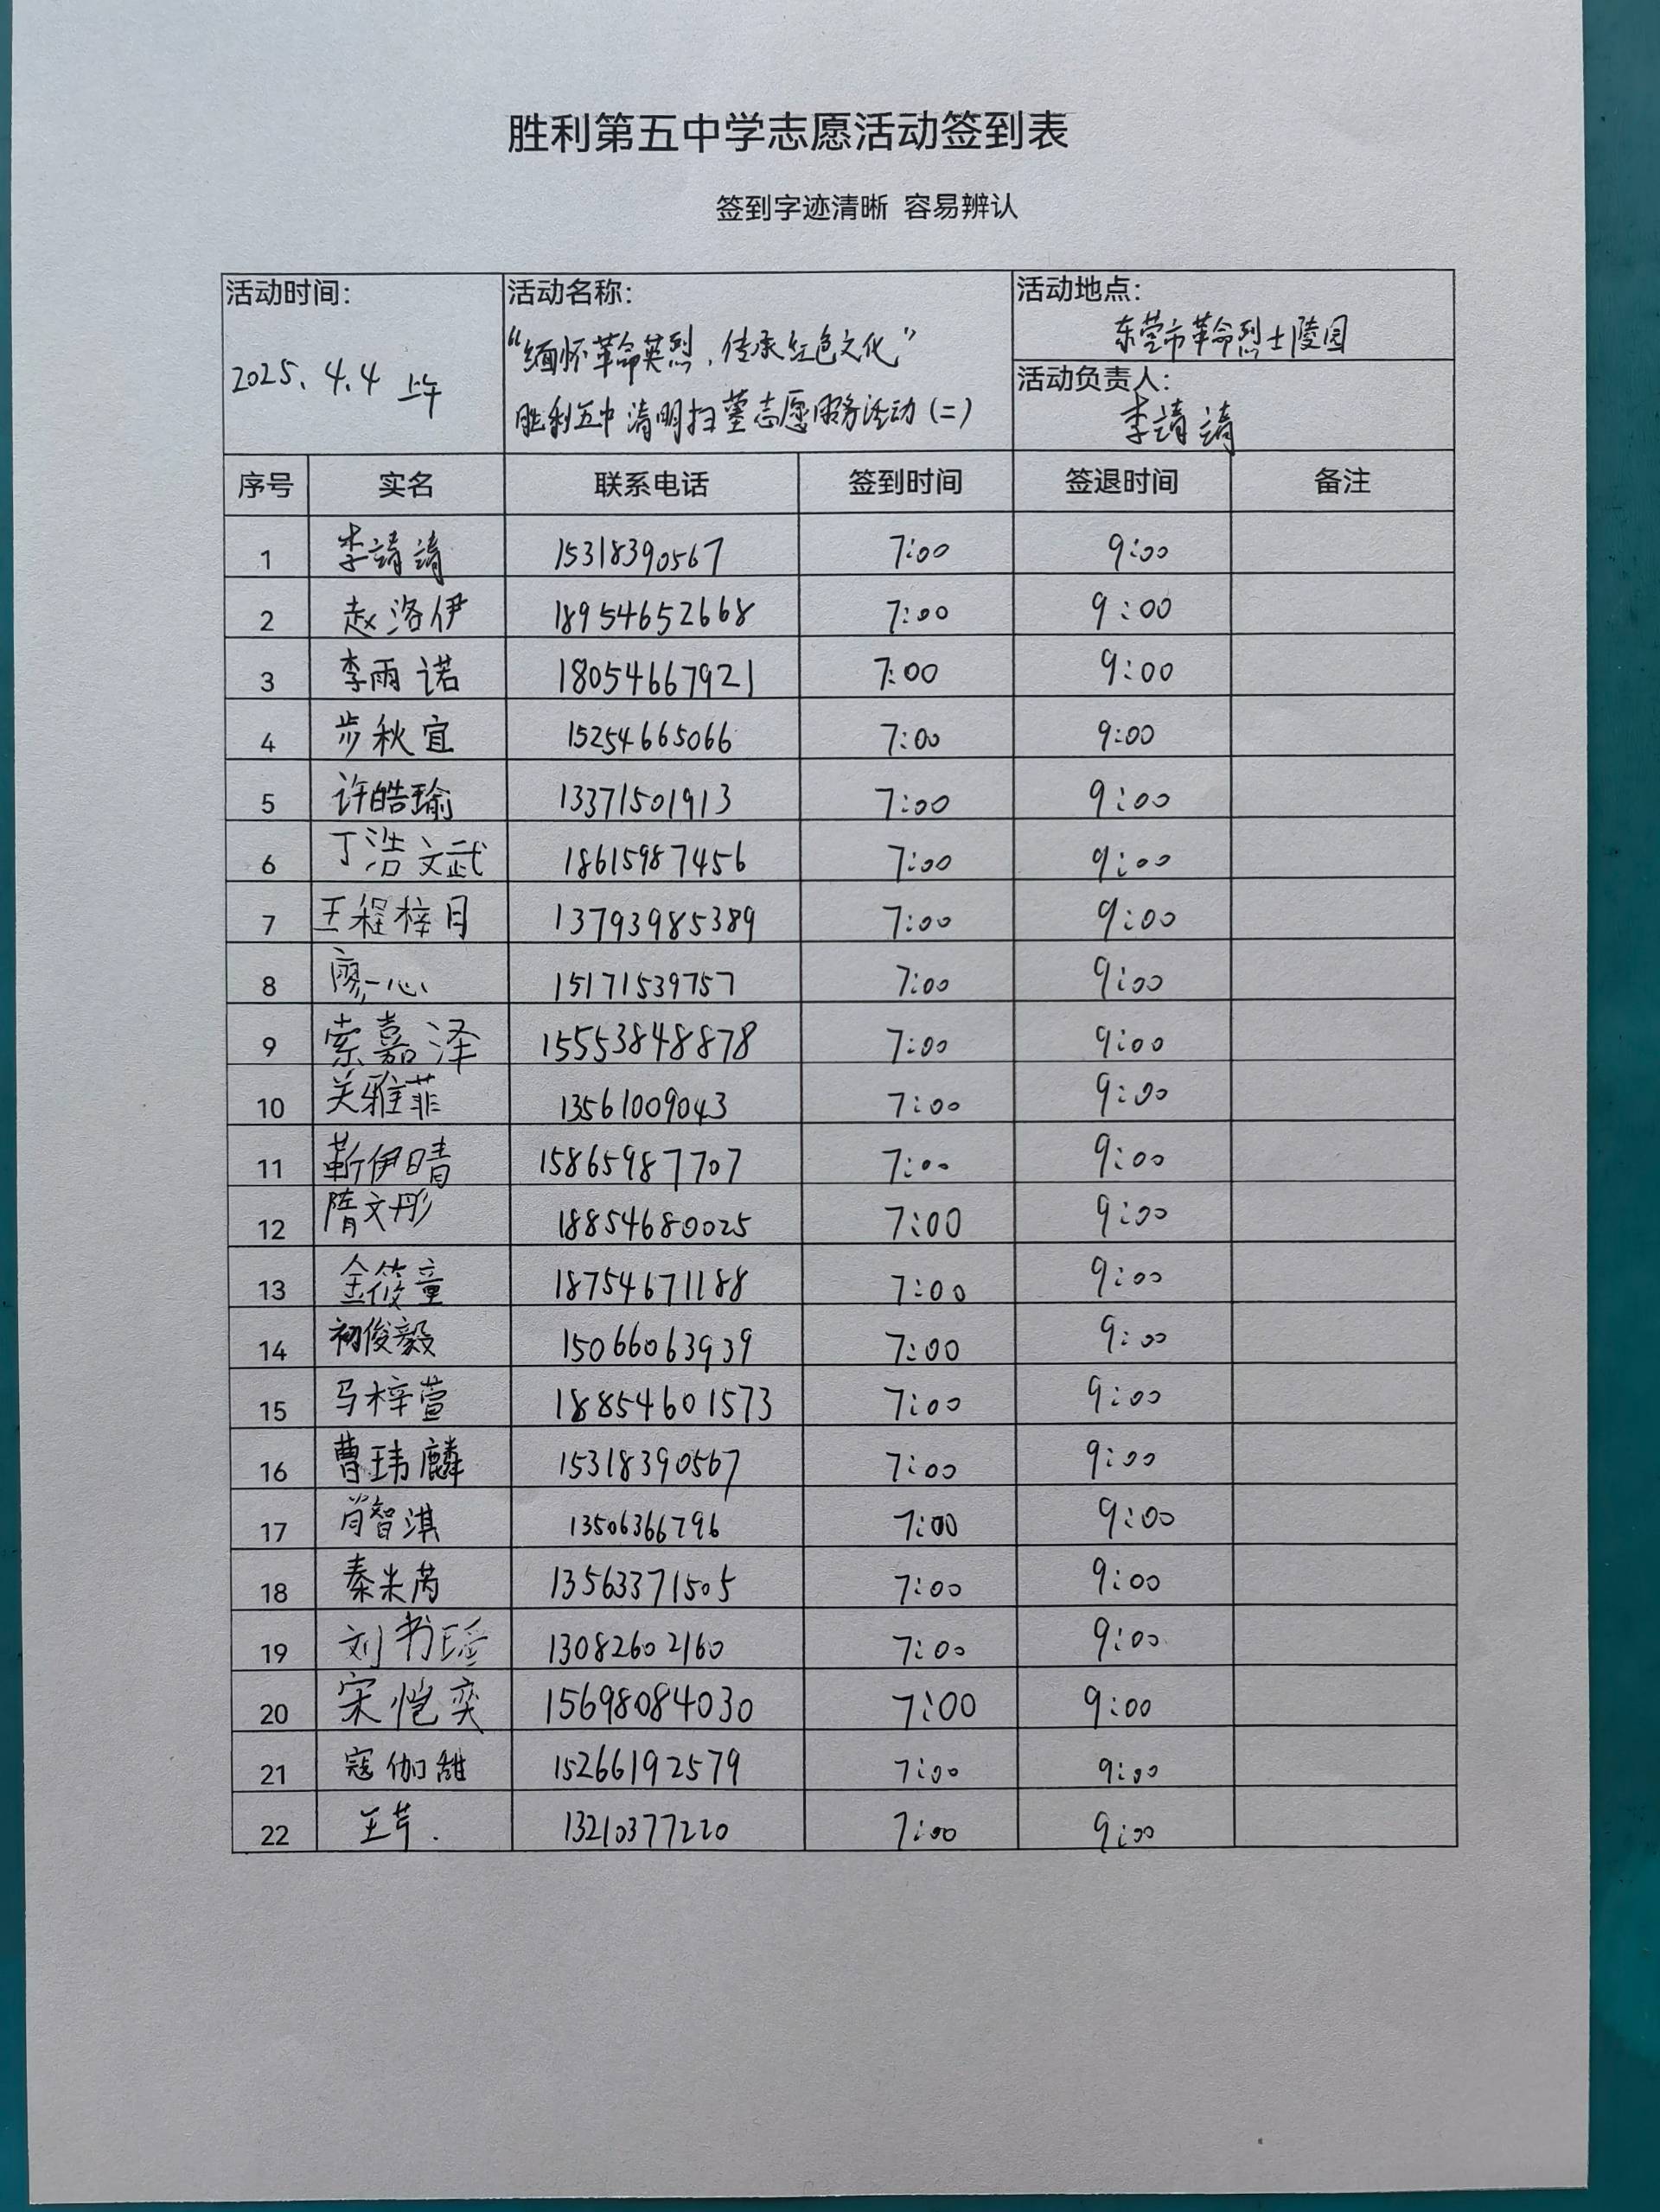 胜利第五中学志愿活动签到表
签到字迹清晰 容易辨认
活动时间: 2025.4.4 上午
活动名称: “缅怀革命英烈，传承红色文化”
胜利五中清明扫墓志愿服务活动（二）
活动地点: 东营市革命烈士陵园
活动负责人: 李靖靖
序号 实名 联系电话 签到时间 签退时间 备注
1 李靖靖 15318390567 7:00 9:00
2 赵洛伊 18954652668 7:00 9:00
3 李雨诺 18054667921 7:00 9:00
4 步秋宜 15254665066 7:00 9:00
5 许皓瑜 13371501913 7:00 9:00
6 丁浩文武 18615987456 7:00 9:00
7 王程梓月 13793985389 7:00 9:00
8 廖一心 15171539757 7:00 9:00
9 索嘉泽 15553848878 7:00 9:00
10 关雅菲 13561009043 7:00 9:00
11 靳伊晴 15865987707 7:00 9:00
12 隋文彤 18854680025 7:00 9:00
13 金筱童 18754671188 7:00 9:00
14 初俊毅 15066063939 7:00 9:00
15 马梓萱 18854601573 7:00 9:00
16 曹玮麟 15318390567 7:00 9:00
17 肖智淇 13506366796 7:00 9:00
18 秦米芮 13563371505 7:00 9:00
19 刘书瑶 13082602160 7:00 9:00
20 宋恺奕 15698084030 7:00 9:00
21 寇伽甜 15266192579 7:00 9:00
22 王芹. 13210377220 7:00 9:00